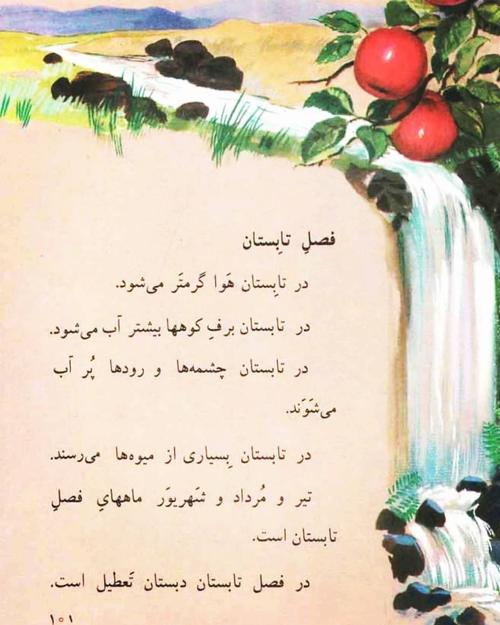 فصلِ تابِستان
در تابِستان هَوا گرمتَر می‌شود.
در تابستان برفِ کوهها بیشتر آب می‌شود.
در تابستان چشمه‌ها و رودها پُر آب
می‌شَوَند.
در تابستان بِسیاری از میوه‌ها می‌رسند.
تیر و مُرداد و شَهریوَر ماههایِ فصلِ
تابستان است.
در فصل تابستان دبستان تَعطیل است.
۱۰۱